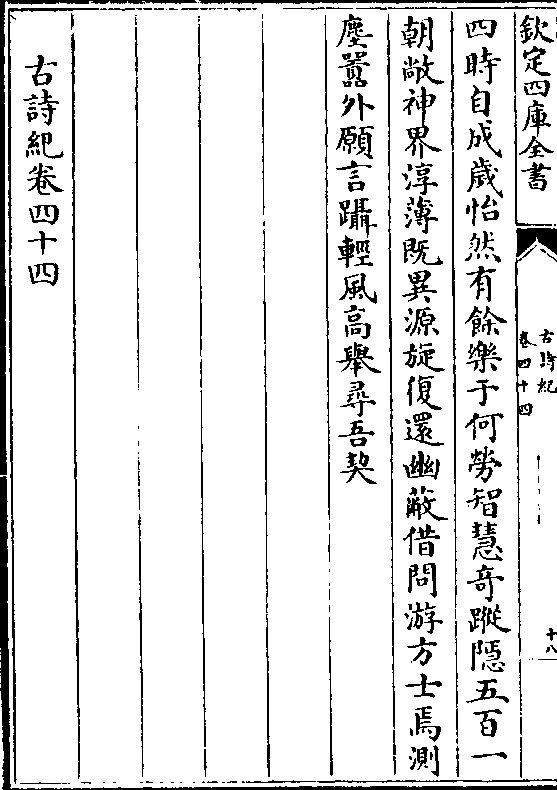 欽定四庫全書
古詩紀
卷四十四
十八
四時自成歲怡然有餘樂于何勞智慧奇蹤隱五百一
朝敞神界淳薄既異源旋復還幽蔽借問游方士焉測
塵囂外願言躡輕風高舉尋吾契
古詩紀卷四十四